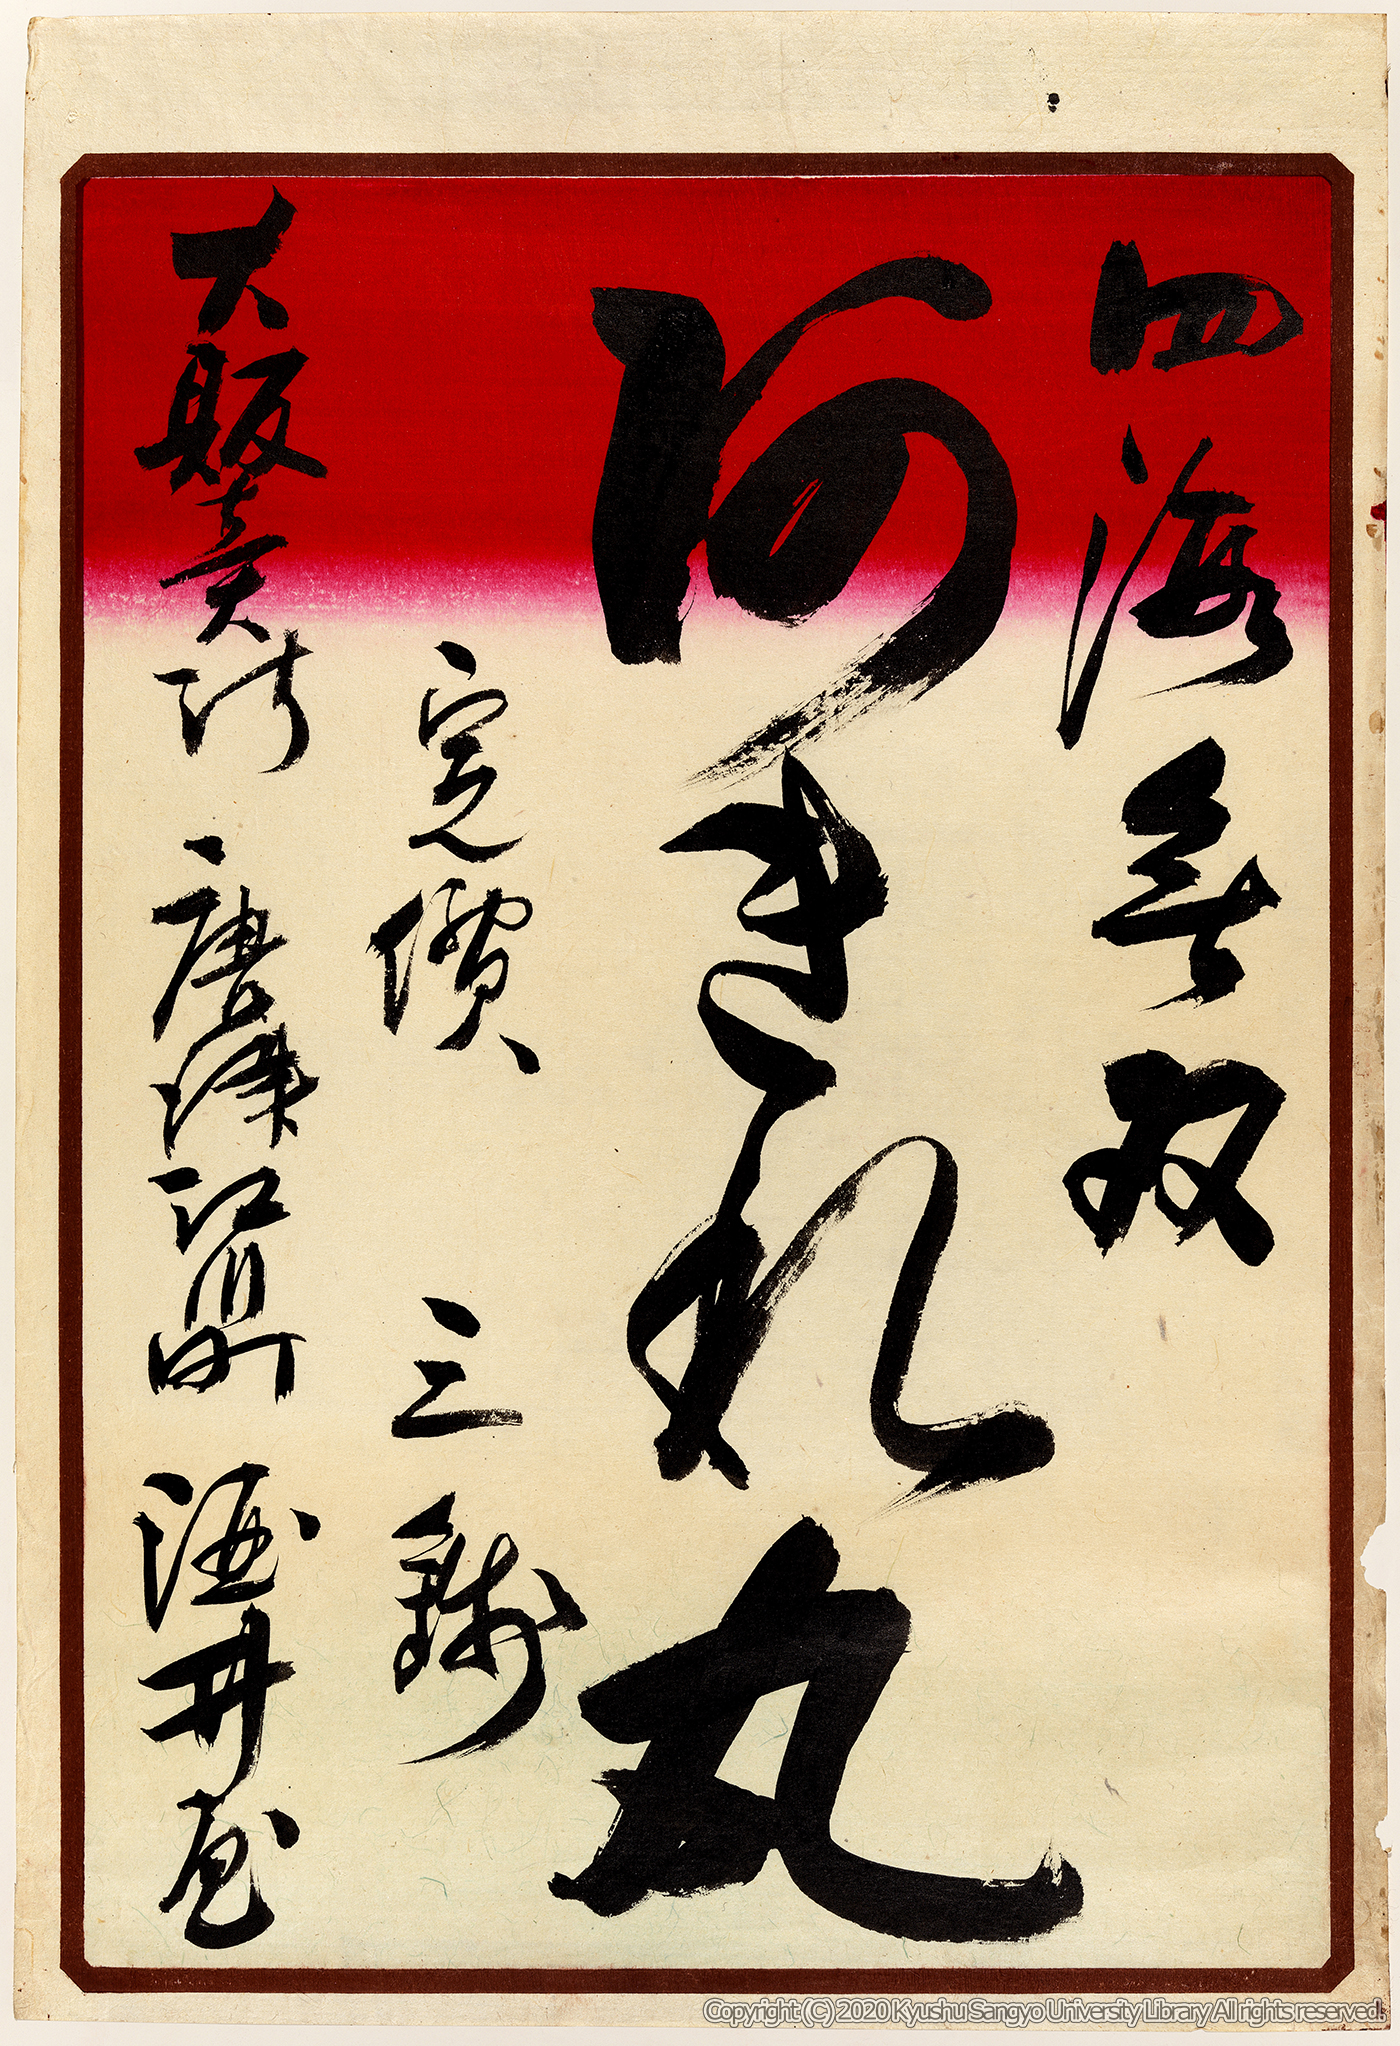 四海無双
阿きれ丸
定價 三錢
大販賣所 唐津江川町 酒井屋
Copyright (C) 2020 Kyushu Sangyo University Library All rights reserved.